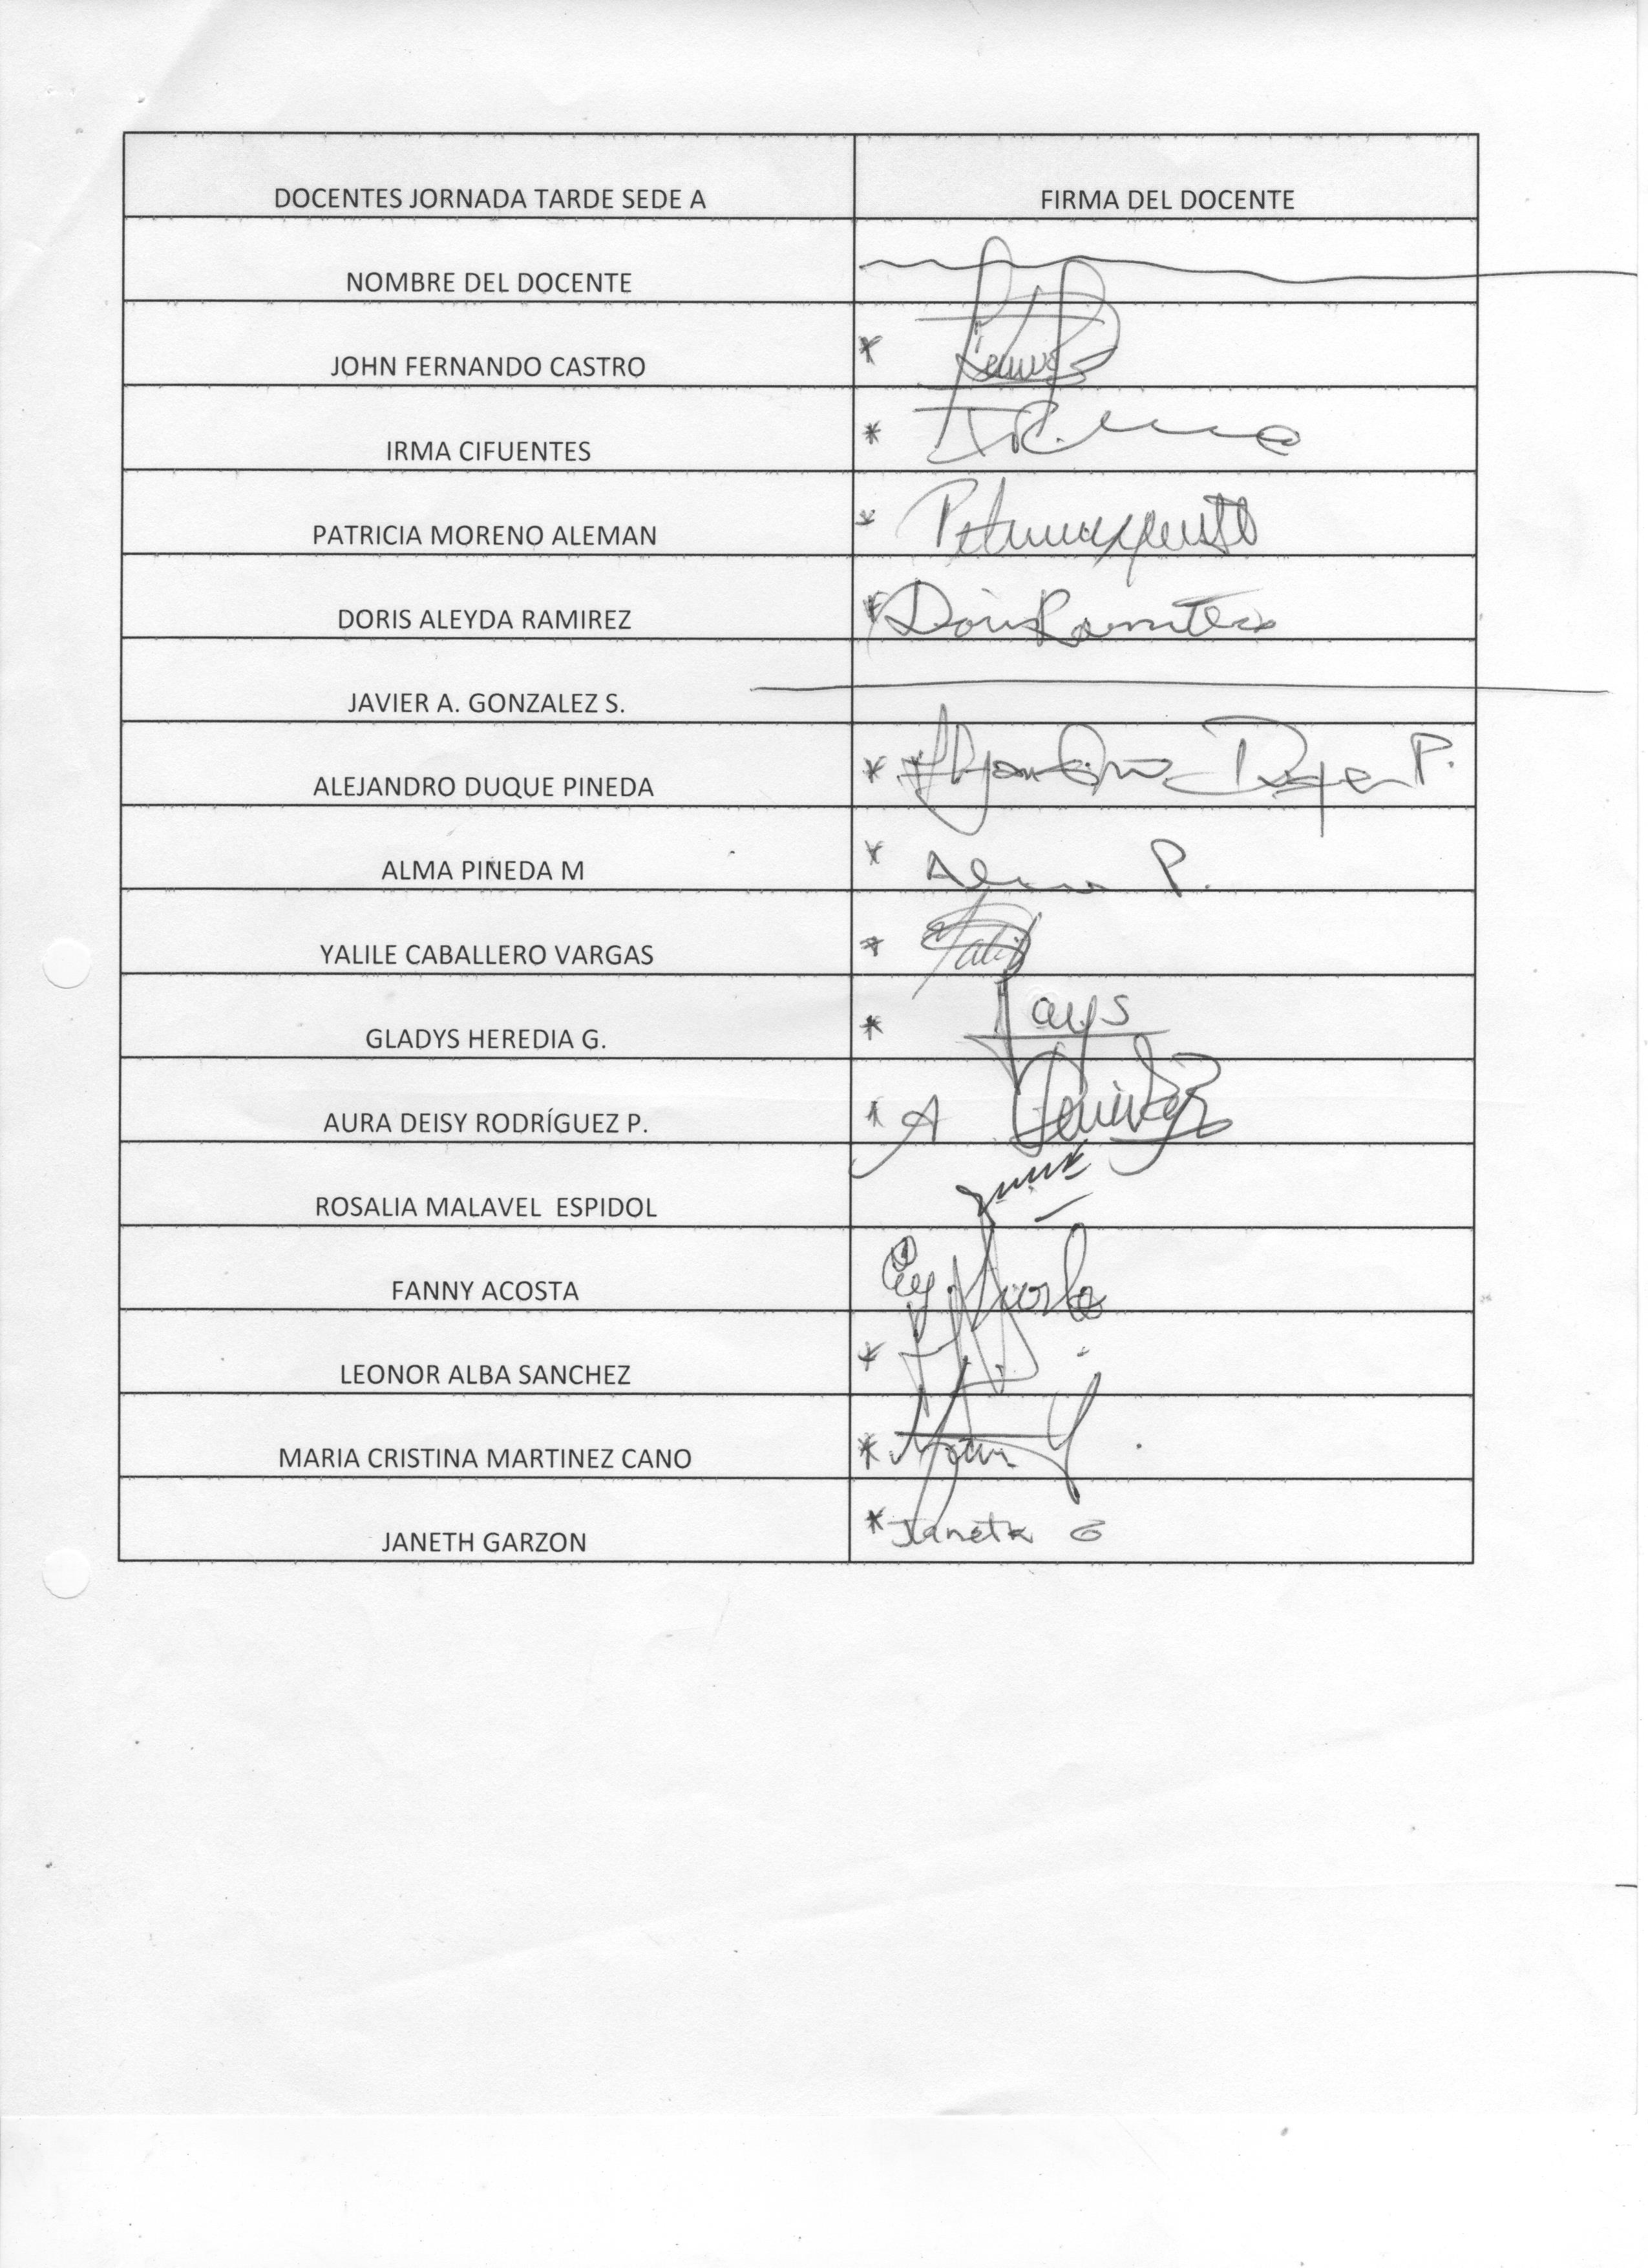 DOCENTES JORNADA TARDE SEDE A FIRMA DEL DOCENTE
NOMBRE DEL DOCENTE
JOHN FERNANDO CASTRO *
IRMA CIFUENTES *
PATRICIA MORENO ALEMAN *
DORIS ALEYDA RAMIREZ * Doris Ramirez
JAVIER A. GONZALEZ S.
ALEJANDRO DUQUE PINEDA * Alejandro Duque P.
ALMA PIÑEDA M * Alma P.
YALILE CABALLERO VARGAS *
GLADYS HEREDIA G. *
AURA DEISY RODRÍGUEZ P. * A
ROSALIA MALAVEL ESPIDOL
FANNY ACOSTA Acosta
LEONOR ALBA SANCHEZ *
MARIA CRISTINA MARTINEZ CANO *
JANETH GARZON * Janeth G